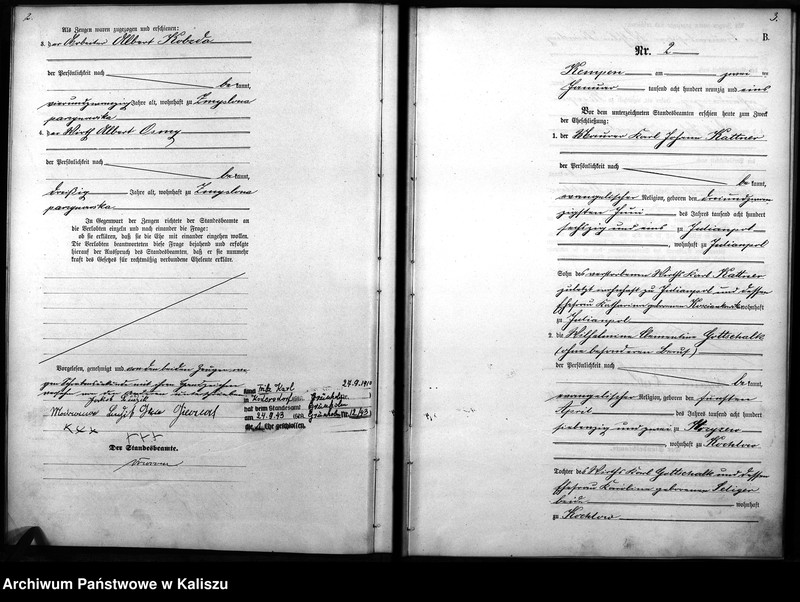 2.
Als Zeugen waren zugezogen und erschienen:
3. der Arbeiter Albert Kobeda
der Persönlichkeit nach
bekannt,
vierundzwanzig Jahre alt, wohnhaft zu Zmyslona
parzynowska
4. der Wirth Albert
der Persönlichkeit nach
bekannt,
dreißig Jahre alt, wohnhaft zu Zmyslona
parzynowska
In Gegenwart der Zeugen richtete der Standesbeamte an
die Verlobten einzeln und nach einander die Frage:
ob sie erklären, daß sie die Ehe mit einander eingehen wollen.
Die Verlobten beantworteten diese Frage bejahend und erfolgte
hierauf der Ausspruch des Standesbeamten, daß er sie nunmehr
kraft des Gesetzes für rechtmäßig verbundene Eheleute erkläre.
Vorgelesen, genehmigt und von den beiden Zeugen
+++
Der Standesbeamte.
24.9.1910
Karl
in
hat dem Standesamt
am 24.9.43
geschlossen.
3.
B.
Nr. 2
Kempen am zwei ten
Januar tausend acht hundert neunzig und eins
Vor dem unterzeichneten Standesbeamten erschien heute zum Zweck
der Eheschließung:
1. der Maurer Karl Johann Kattner
der Persönlichkeit nach
bekannt,
evangelischer Religion, geboren den dreiundzwan
zigsten Juni des Jahres tausend acht hundert
sechzig und eins zu Julianpol
, wohnhaft zu Julianpol
Sohn des verstorbenen Wirths Karl Kattner
zuletzt wohnhaft zu Julianpol und dessen
Ehefrau Katharina geborenen wohnhaft
zu Julianpol
2. die Wilhelmine Clementine Gottschalk
(ohne besonderen Beruf)
der Persönlichkeit nach
bekannt,
evangelischer Religion, geboren den fünften
April des Jahres tausend acht hundert
siebenzig und zwei zu
, wohnhaft zu Kochlow
Tochter des Wirths Karl Gottschalk und dessen
Ehefrau Karoline geborenen Seliger
beide wohnhaft
zu Kochlow
Archiwum Państwowe w Kaliszu